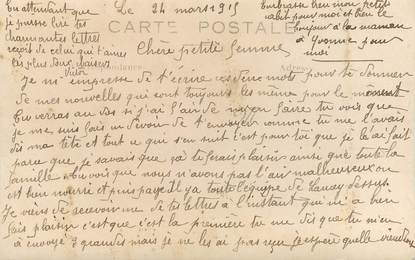 En attendant que
je puisse lire tes
charmantes lettres
reçois de celui qui t'aime
les plus doux baisers
Victor
Le 24 mars 1915
CARTE POSTALE
Embrasse bien mon petit
pour moi et bien le
bonjour à la maman
à Yvonne pour
moi
Chère petite femme
Je m'empresse de t'écrire ces deux mots pour te donner
de mes nouvelles qui sont toujours les même pour le moment
Tu verras au dos si j'ai l'air de tu vois que
je me suis fais un devoir de t'envoyer comme tu me l'avais
dis ma tête et tout ce qui s'en suit c'est pour toi que je l'ai fait
parce que je savais que ça te ferais plaisir ainsi que toute la
famille tu vois que nous n'avons pas l'air malheureux on
est bien nourri et puis payé Il y a toute l'équipe de dessus
Je viens de recevoir une de tes lettres à l'instant qui m'a bien
fais plaisir c'est que c'est la première tu me dis que tu m'en
à envoyé 3 grandes mais je ne les ai pas reçu j'espère quelle viendra